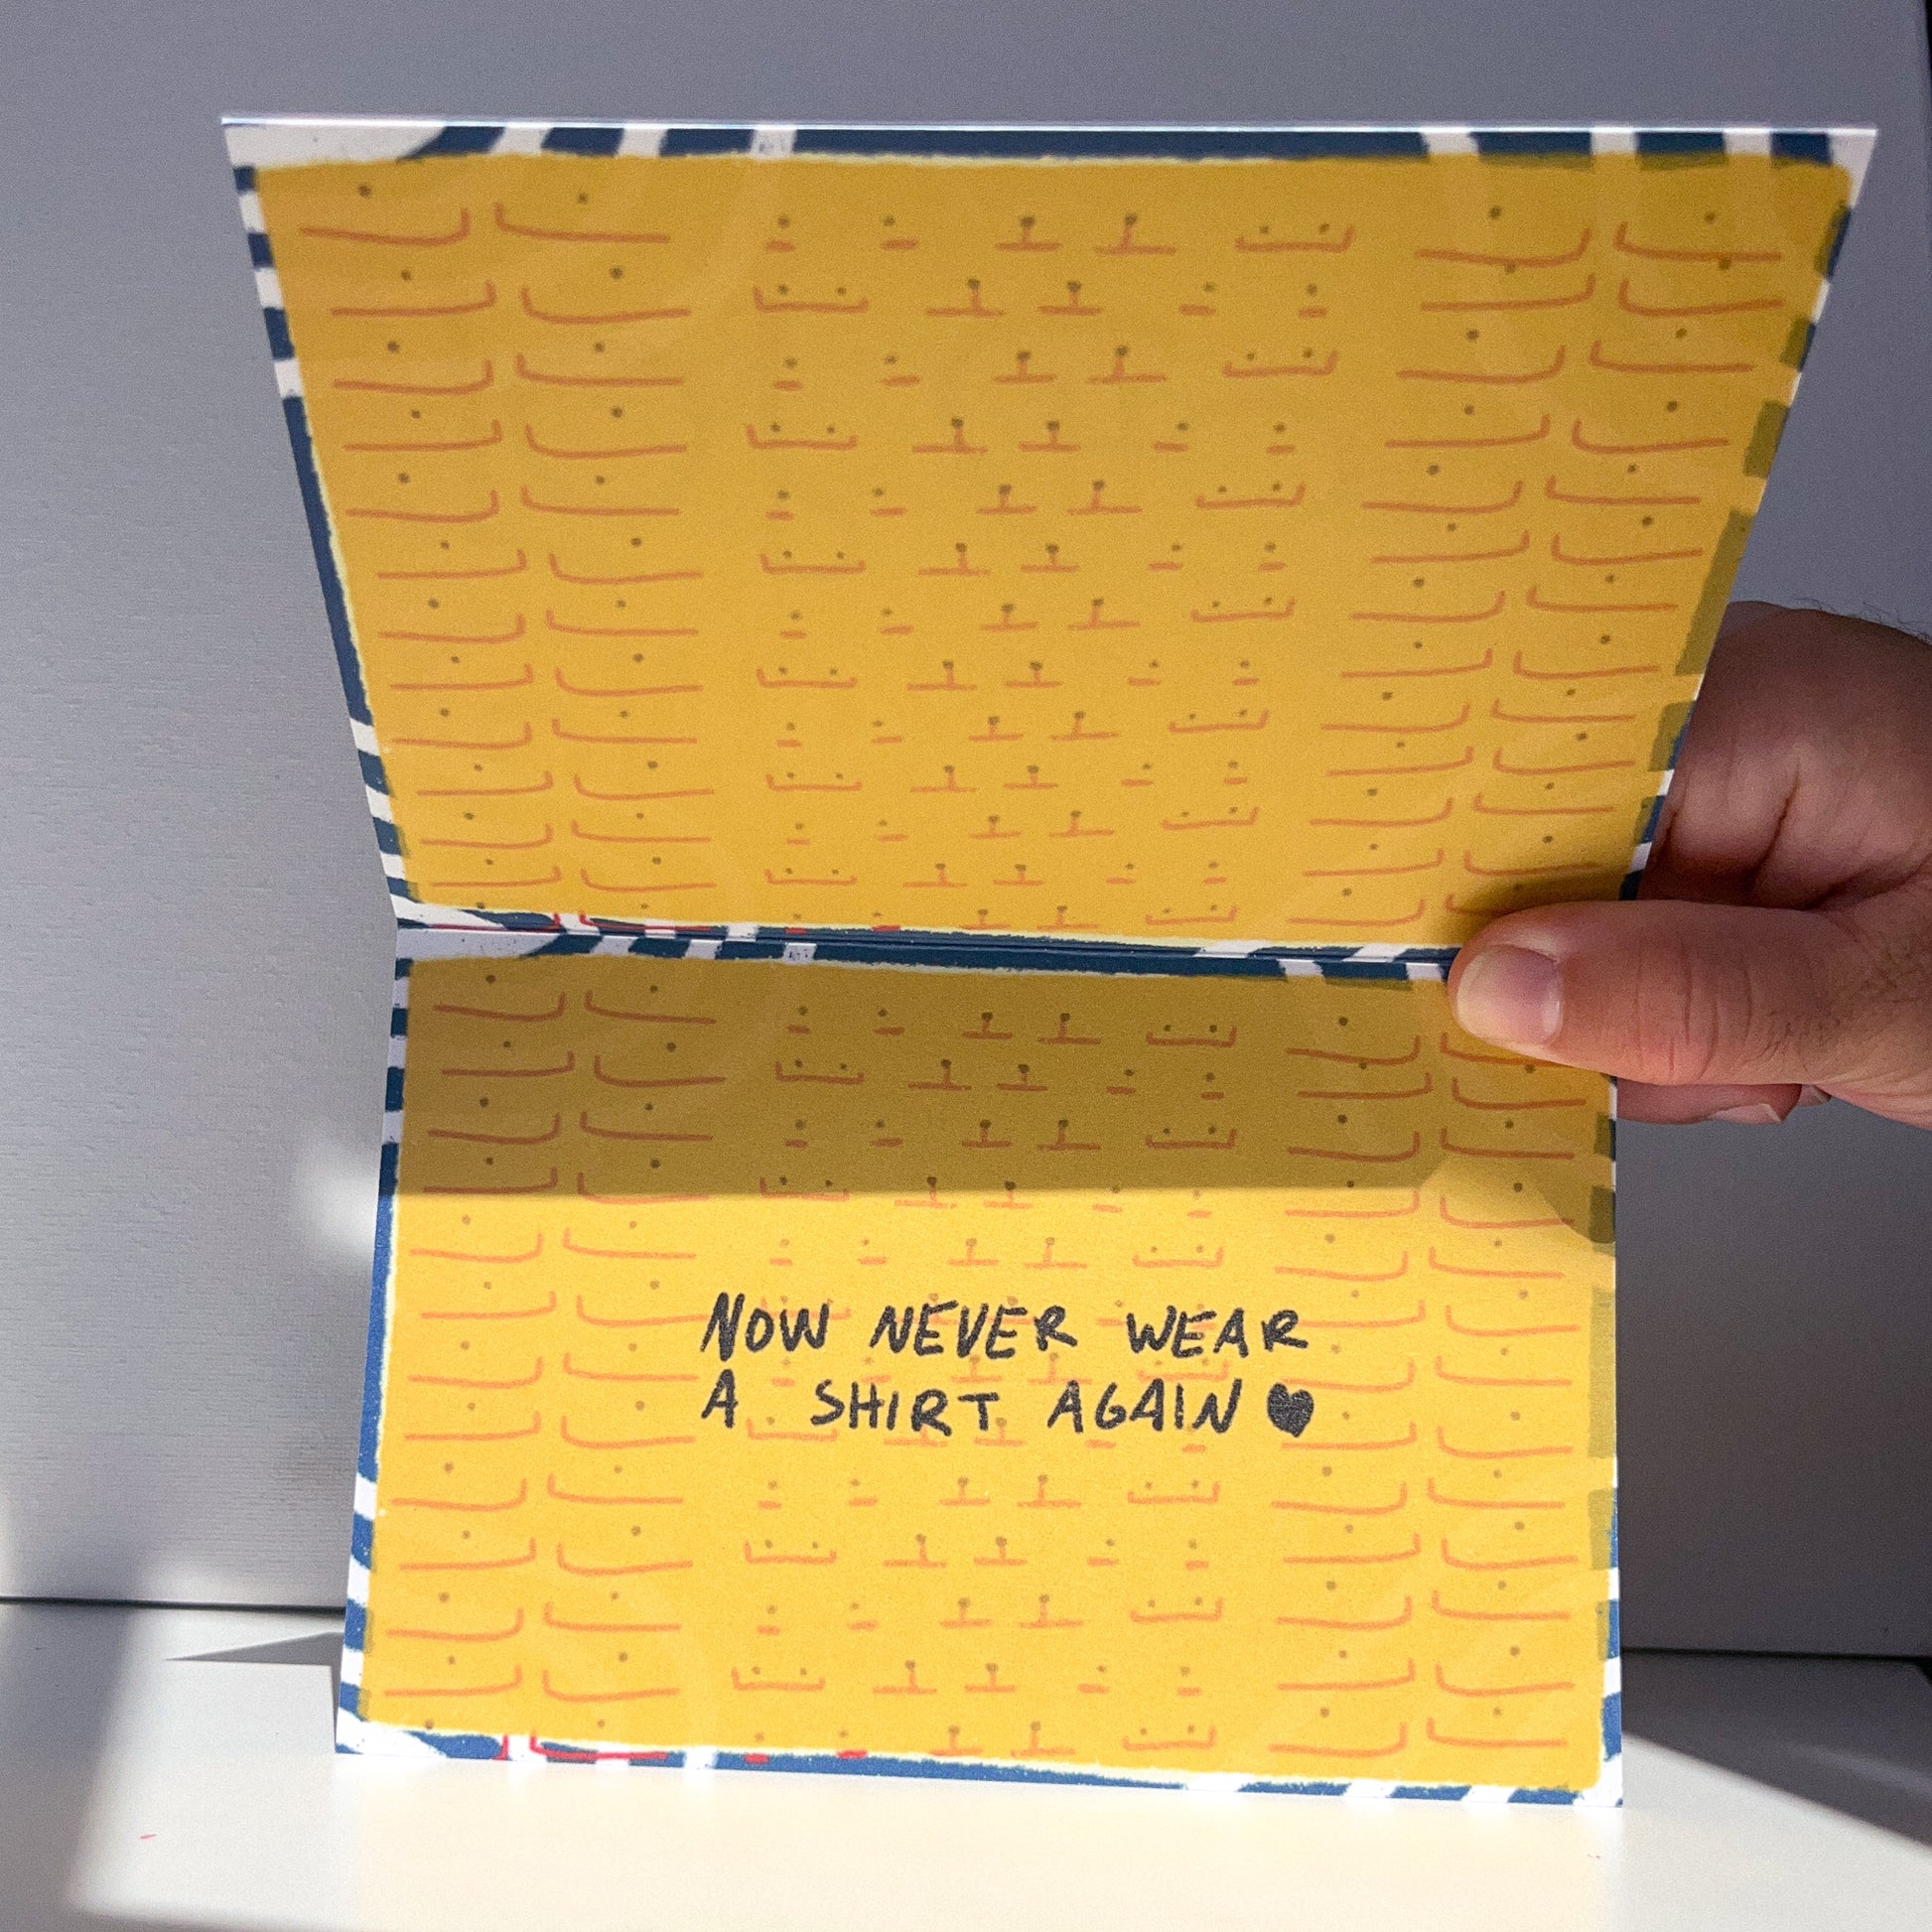 NOW NEVER WEAR
A SHIRT AGAIN ♥